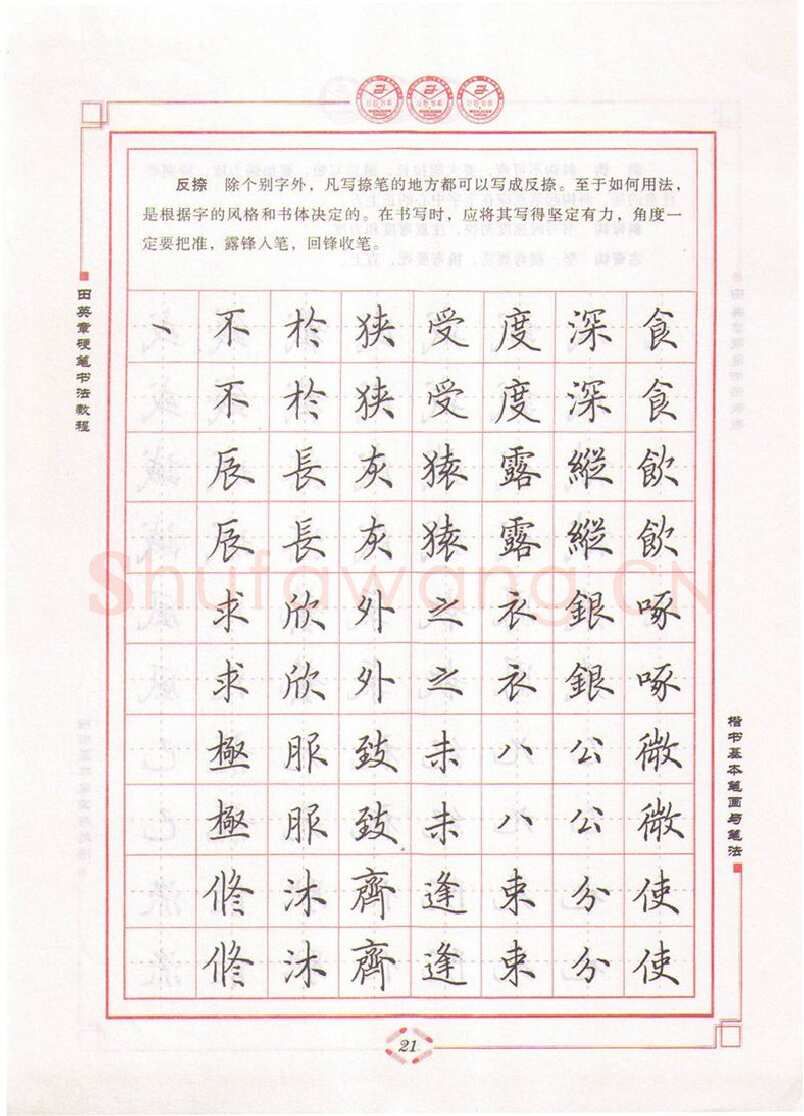 反捺 除个别字外，凡写捺笔的地方都可以写成反捺。至于如何用法，
是根据字的风格和书体决定的。在书写时，应将其写得坚定有力，角度一
定要把准，露锋入笔，回锋收笔。
田英章硬笔书法教程
丶不於狭受度深食
不於狭受度深食
辰長灰猿露縱飲
辰長灰猿露縱飲
Shufawang.CN
求欣外之衣銀啄
求欣外之衣銀啄
極服致未八公微
極服致未八公微
修沐齊逢束分使
修沐齊逢束分使
楷书基本笔画与笔法
21